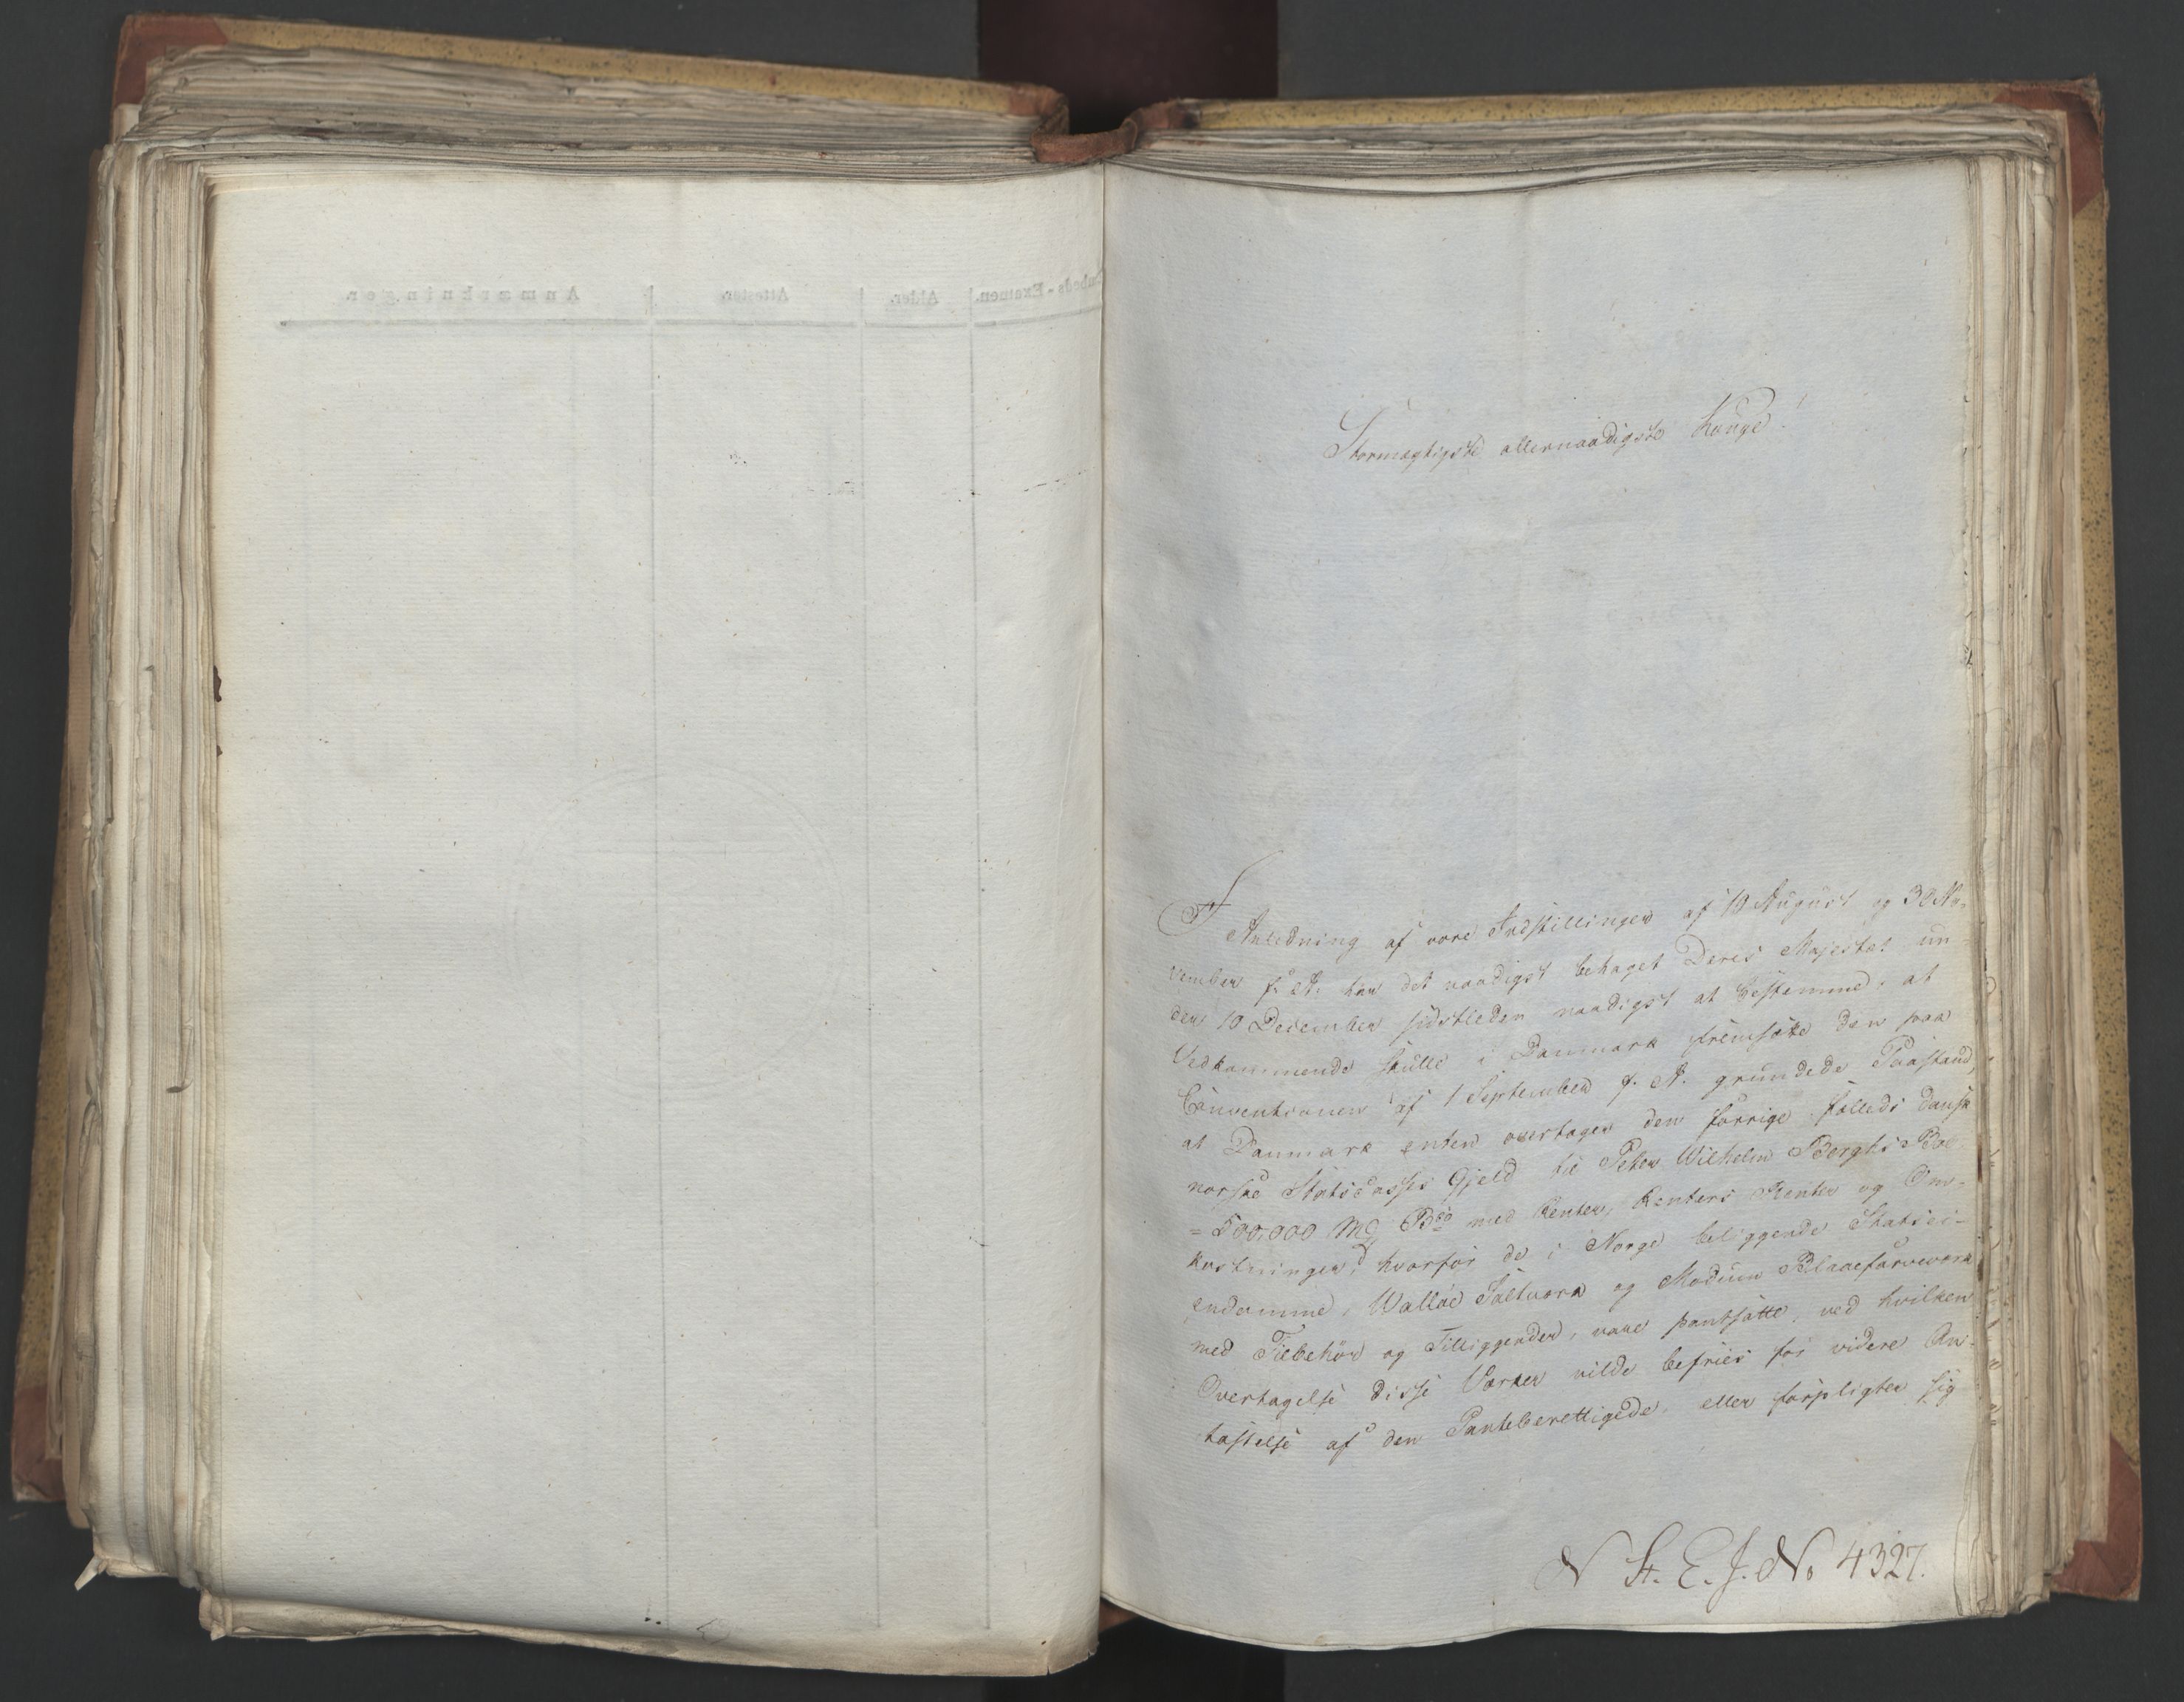 Embeds-Examen. Alder. Attester. Anmærkninger.
Stormægtigste allernaadigste Konge!
I Anledning af vore Indstillinger af 10 August og 30 No-
vember f: A: har det naadigst behaget Deres Majestæt un-
der 10 December sidstleden naadigst at bestemme, at
Vedkommende skulle i Danmark fremsætte den paa
Conventionen af 1 September f. A. grundede Paastand,
at Danmark enten overtager den forrige fælleds dansk
norske Statscasses Gjeld til Peter Wilhelm Berghs Boe
= 500,000 Mk Bco med Renter, Renters Renter og Om-
kostninger, hvorfor de i Norge beliggende Statsei-
endomme, Walløe Saltværk og Modum Blaaefarveværk
med Tilbehør og Tilliggender, vare pantsatte, ved hvilken
Overtagelse disse Værker vilde befries for videre An-
tastelse af den Panteberettigede, eller forpligter sig
N St. E. J. No 4327.